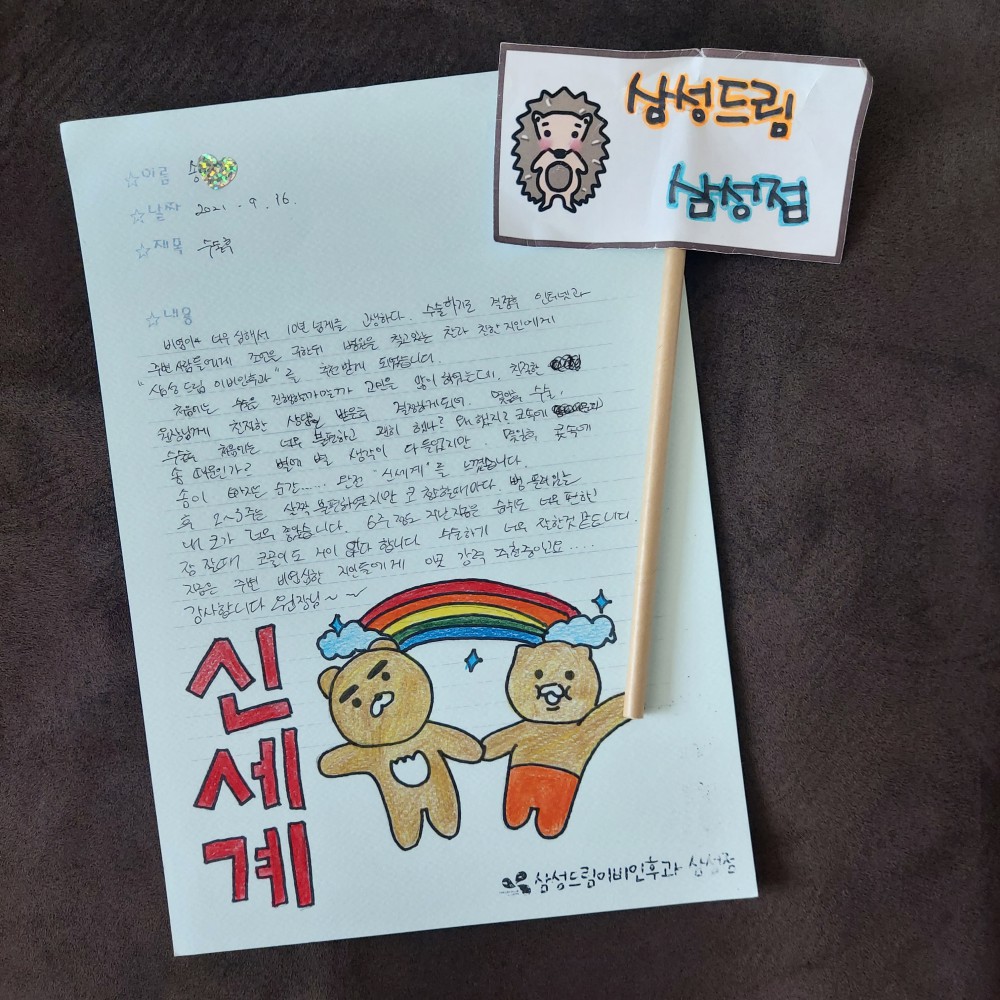 삼성드림
삼성점
☆이름 송
☆날짜 2021. 9. 16.
☆제목 수술후
☆내용
비염이 너무 심해서 10년 넘게를 고생하다. 수술하기로 결정후 인터넷과
주변 사람들에게 조언을 구한뒤 병원을 찾고있는 찰라 친한 지인에게
"삼성 드림 이비인후과"를 추천받게 되었습니다.
처음에는 수술을 진행할까말까 고민을 많이 하였는데. 친절한
원장님께 친절한 상담을 받은후 결정하게되어. 몇일후 수술,
수술후 처음에는 너무 불편하고 괜히 했나? 왜 했지? 코속에
솜 때문인가? 별에 별 생각이 다 들었지만. 몇일후 콧속에
솜이 빠지는 순간..... 완전 "신세계"를 느꼈습니다.
후 2~3주는 살짝 불편하였지만 코 청소할때마다. 뻥 뚫려있는
내 코가 너무 좋았습니다. 6주 정도 지난 지금은 숨쉬도 너무 편하고
잠 잘때 코골이도 거의 없다 합니다. 수술하기 너무 잘한것 같습니다.
지금은 주변 비염심한 지인들에게 이곳 강력 추천중이고요....
감사합니다 원장님~ ~
신
세
계
삼성드림이비인후과 삼성점